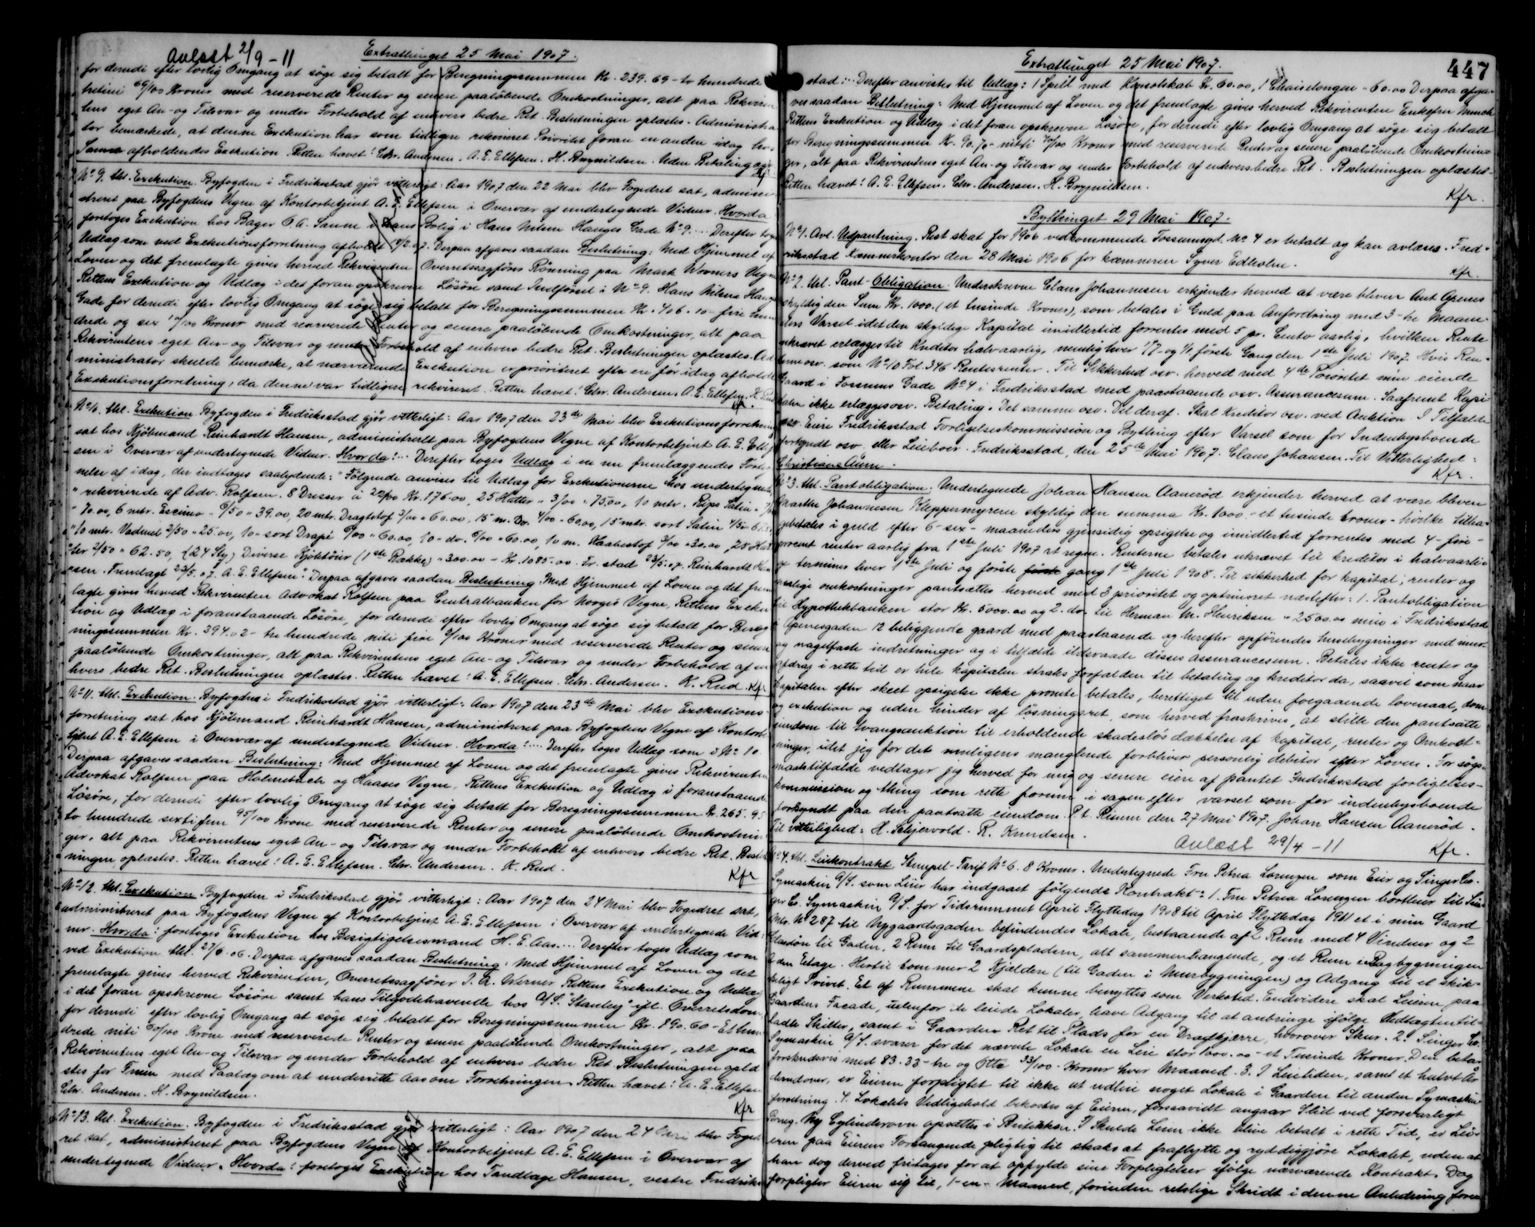 Avlæst 2/9-11
Extrathinget 25 Mai 1907.
for derudi efter lovlig Omgang at søge sig betalt for Beregningssummen Kr. 239.69 - to hundrede
Kroner med reserverede Renter og senere paaløbende Omkostninger, alt paa Rekviren-
tens eget An- og Tilsvar og under Forbehold af enhvers bedre Ret. Beslutningen oplæstes. Administra-
tor bemærkede, at denne Exekution har som tidligere rekvireret Prioritet foran en anden idag hos
Samme afholdendes Exekution. Retten hævet: Chr. Andersen. A. E. Ellefsen. H. Brynildsen. Uden Betaling
Kfr
No 9. Thl. Exekution. Byfogden i Fredriksstad gjør vitterligt: Aar 1907 den 22 Mai blev Fogedret sat, admini-
streret paa Byfogdens Vegne af Kontorbetjent A. E. Ellefsen i Overvær af undertegnede Vidner. Hvorda
foretoges Exekution hos Bager O. A. Sanne i hans Bolig i Hans Nilsen Hauges Gade No 9. ... Derefter toges
Udlæg som ved Exekutionsforretning afholdt Derpaa afgaves saadan Beslutning: Med Hjemmel af
Loven og det fremlagte gives herved Rekvirenten Overretssagfører Rønning paa Vegne
Rettens Exekution og Udlæg i det foran opskrevne Løsøre samt Indførsel i No 9. Hans Nilsens Hauges
Gade for derudi efter lovlig Omgang at søge sig betalt for Beregningssummen Kr. 406.10 - fire hun-
drede og sex 10/100 Kroner med reserverede Renter og senere paaløbende Omkostninger, alt paa
Rekvirentens eget An- og Tilsvar og under Forbehold af enhvers bedre Ret. Beslutningen oplæstes. Ad-
ministrator skulde bemærke, at nærværende Exekution er prioriteret efter en før idag afholdt
Exekutionsforretning, da denne var tidligere rekvireret. Retten hævet: Chr. Andersen, A. E. Ellefsen.
No 10. Thl. Exekution. Byfogden i Fredriksstad gjør vitterligt: Aar 1907 den 23de Mai blev Exekutionsforretning
sat hos Kjøbmand Reinhardt Hansen, administreret paa Byfogdens Vegne af Kontorbetjent A. E. Ellef-
sen i Overvær af undertegnede Vidner. Hvorda: ... Derefter toges Udlæg i en nu fremlæggendes Forteg-
nelse af idag, der indtages saalydende: "Følgende anvises til Udlæg for Exekutionerne hos undertegnede
rekvirerede af Adv. Rolfsen. 8 Dresser a 22/00 Kr. 176.00, 25 Hatter - 3/00 = 75.00, 10 mtr. Rips Satin
6 mtr. Eskimo - 6/50 = 39.00, 20 mtr. Dragtstof 3/00 = 60.00, 15 m. Do. 4/00 - 60.00, 15 mtr. sort Satin
10 mtr. Vadmel 2/50 = 25.00, 10 - sort Drapi 6/00 = 60.00, 10 - do. 6/00 = 60.00, 10 m. Kaabestof 3/00 = 30.00, 25 Hat-
ter 2/50 = 62.50, (24 Stk) Diverse Kjøletøier (1ste Række) = 300.00 - Kr. 1085.00. Fr. stad 23/5.07. Reinhardt Han-
sen. Fremlagt 23/5.07. A. E. Ellefsen". Derpaa afgaves saadan Beslutning: Med Hjemmel af Loven og det frem-
lagte gives herved Rekvirenten Advokat Rolfsen paa Centralbanken for Norges Vegne, Rettens Exeku-
tion og Udlæg i foranstaaende Løsøre, for derudi efter lovlig Omgang at søge sig betalt for Bereg-
ningssummen Kr. 394.02 - tre hundrede niti fire 2/100 Kroner med reserverede Renter og senere
paaløbende Omkostninger, alt paa Rekvirentens eget An- og Tilsvar og under Forbehold af en-
hvers bedre Ret. Beslutningen oplæstes. Retten hævet: A. E. Ellefsen. Chr. Andersen. K. Rud. Kfr
No 11. Thl. Exekution. Byfogden i Fredriksstad gjør vitterligt: Aar 1907 den 23de Mai blev Exekutions-
forretning sat hos Kjøbmand Reinhardt Hansen, administreret paa Byfogdens Vegne af Kontor-
betjent A. E. Ellefsen i Overvær af undertegnede Vidner. Hvorda: ... Derefter toges Udlæg som i No 10.
Derpaa afgaves saadan Beslutning: Med Hjemmel af Loven og det fremlagte gives Rekvirenten
Advokat Rolfsen paa og Haases Vegne, Rettens Exekution og Udlæg i foranstaaende
Løsøre, for derudi efter lovlig Omgang at søge sig betalt for Beregningssummen Kr. 265.95
to hundrede sexti fem 95/100 Krone med reserverede Renter og senere paaløbende Omkostnin-
ger, alt paa Rekvirentens eget An- og Tilsvar og under Forbehold af enhvers bedre Ret. Beslut-
ningen oplæstes. Retten hævet: A. E. Ellefsen. Chr. Andersen. K. Rud.
Kfr
No 12. Thl. Exekution. Byfogden i Fredriksstad gjør vitterligt: Aar 1907 den 24 Mai blev Fogedret sat,
administreret paa Byfogdens Vegne af Kontorbetjent A. E. Ellefsen i Overvær af undertegnede Vid-
ner. Hvorda: foretoges Exekution hos Besigtigelsesmand H. E. Aas. ... Derefter toges Udlæg som
ved Exekution thl. Derpaa afgaves saadan Beslutning: Med Hjemmel af Loven og det
fremlagte gives herved Rekvirenten, Overretssagfører Werner Rettens Exekution og Udlæg
i det foran opskrevne Løsøre samt hans Tilgodehavende hos A/S "Stanley" ifl. Overretsdom
for derudi efter lovlig Omgang at søge sig betalt for Beregningssummen Kr. 190.60 - Et hun-
drede niti 60/100 Krone med reserverede Renter og senere paaløbende Omkostninger, alt paa
Rekvirentens eget An- og Tilsvar og under Forbehold af enhvers bedre Ret. Beslutningen oplæ-
stes for med Paalæg om at underrette Aas om Forretningen. Retten hævet: A. E. Ellefsen
Chr. Andersen. H. Brynildsen.
Kfr
No 13. Thl. Exekution. Byfogden i Fredriksstad gjør vitterligt: Aar 1907 den 24 Mai blev Foged-
ret sat, administreret paa Byfogdens Vegne af Kontorbetjent A. E. Ellefsen i Overvær af
undertegnede Vidner. Hvorda: foretoges Exekution hos Tandlæge Hansen, vestre Fredriks-
Extrathinget 25 Mai 1907.
447
stad: ... Derefter anvistes til Udlæg: 1 Speil med Konsolskab Kr. 60.00, 1 Chaiselongue - 60.00 Derpaa afga-
ves saadan Beslutning: Med Hjemmel af Loven og det fremlagte gives herved Rekvirenten Enkefru Munch
Rettens Exekution og Udlæg i det foran opskrevne Løsøre, for derudi efter lovlig Omgang at søge sig betalt
for Beregningssummen Kr. 90.70 - nitti 70/100 Kroner med reserverede Renter og senere paaløbende Omkostnin-
ger, alt paa Rekvirentens eget An- og Tilsvar og under Forbehold af enhvers bedre Ret. Beslutningen oplæstes.
Retten hævet: A. E. Ellefsen. Chr. Andersen. H. Brynildsen.
Kfr.
Bythinget 29 Mai 1907.
No 1. Avl. Udpantning. Rest skat for 1906 vedkommende Torsnesgd. No 4 er betalt og kan avlæses. Fred-
riksstad kæmnerkontor den 28 Mai 1906 for kæmneren Syver Edholm.
Kfr.
No 2. Thl. Pant-Obligation. Underskrevne Claus Johannesen erkjender herved at være bleven Ant. Opems
skyldig den Sum Kr. 1000. (et tusinde Kroner), som betales i Guld paa Anfordring med 3-tre Maane-
ders Varsel idet den skyldige Kapital imidlertid forrentes med 5 pr. Cento aarlig, hvilken Rente
ukrævet erlægges til Kreditor halvaarlig, nemlig hver 1/7 og 1/1 første Gang den 1ste Juli 1907. Hvis Ren-
terne osv. som No 10 Fol. 346 Rentesrenter. Til Sikkerhed osv. herved med 4de Prioritet min eiende
Gaard i Torsnes Gade No 4 i Fredriksstad med paastaaende osv. Assurancesum. Saafremt Kapi-
talen ikke erlægges osv. Betaling. Det samme osv. Del deraf. Skal Kreditor osv. ved Auktion I Tilfælde
osv. Eier Fredriksstad Forligelseskommission og Bything efter Varsel som for Indenbysboende
forkyndt osv. eller Leieboer. Fredriksstad, den 25de Mai 1907. Claus Johansen. Til Vitterlighed:
Christiane Aum.
Kfr.
No 3. Thl. Pantobligation. Undertegnede Johan Hansen Aanerød erkjender herved at være bleven
Johannesen Kleppermyrene skyldig den summa Kr. 1000 - et tusinde kroner - hvilke tilba-
gebetales i guld efter 6-sex-maaneders gjensidig opsigelse og imidlertid forrentes med 4 - fire -
procent renter aarlig fra 1ste Juli 1907 at regne. Renterne betales ukrævet til kreditor i halvaarli-
ge terminer hver 1ste Juli og første gang 1ste Juli 1908. Til sikkerhed for kapital, renter og
mulige omkostninger pantsættes herved med 3 prioritet og optrinsret næstefter: 1. Pantobligation
til Hypothekbanken stor Kr. 6000.00 og 2. do. til Herman M. Henriksen - 2500.00 min i Fredriksstad
12 beliggende gaard med paastaaende og herefter opførendes husebygninger med mur-
og nagelfaste indretninger og i tilfælde ildsvaade disses assurancesum. Betales ikke renter og
afdrag i rette tid er hele kapitalen straks forfalden til betaling og kreditor da, saavel som naar
kapitalen efter skeet opsigelse ikke promte betales, berettiget til uden foregaaende lovmaal, dom
og exekution og uden hinder af løsningsret, som herved fraskrives, at stille den pantsatte
eiendom til tvangsauktion til erholdende skadesløs dækkelse af kapital, renter og Omkost-
ninger, idet jeg for det muligens manglende forbliver personlig debitor efter Loven. For søgs-
maalstilfælde vedtager jeg herved for mig og senere eier af pantet Fredriksstad forligelses-
kommission og thing som rette forum i sagen efter varsel som for indenbysboende
forkyndt paa den pantsatte eiendom. P.t. Remen den 27 Mai 1907. Johan Hansen Aanerød.
Til vitterlighed: H. Schjervold. R. Knudsen.
Avlæst 29/4-11
Kfr.
No 4. Thl. Leiekontrakt. Stempel-Tarif No 6. 8 Kroner. Undertegnede Fru Petrea Lorenzen som Eier og Singer Co.
Symaskin A/S. som Leier har indgaaet følgende Kontrakt: 1. Fru Petrea Lorenzen bortleier til Sin-
ger Co. Symaskin A/S. for Tidsrummet April Flyttedag 1908 til April Flyttedag 1911 et i min Gaard
Mtr. No 287 til Nygaardsgaden befindendes Lokale, bestaaende af 2 Rum med 4 Vinduer og 2
Glasdøre til Gaden, 2 Rum til Gaardspladsen, alt sammenhængende, og et Rum i Bagbygningen
2den Etage. Hertil kommer 2 Kjældere (til Gaden i Murbygningen) og Adgang til et Skik-
keligt Privet. Et af Rummene skal kunne benyttes som Verksted. Endvidere skal Leieren paa
Gaardens Facade, udenfor de leiede Lokaler, have Adgang til at anbringe ifølge Vedtægten til-
ladte Skilter, samt i Gaarden Ret til Plads for en Dragkjærre, hvorover Skur. 2. Singer Co.
Symaskin A/S. svarer for det nævnte Lokale en Leie stor 1000.00 - et Tusinde Kroner. Den beta-
les forskudsvis med 83.33 - tre og Otte 33/100 - Kroner hver Maaned. 3. I Leietiden, samt et halvt Aar
derudover, er Eieren forpligtet til ikke at udleie noget Lokale i Gaarden til anden Symaskin-
forretning. 4. Lokalets Vedligehold bekostes af Eieren, forsaavidt angaar Slid ved forsvarligt
Brug. Ny Cylinderovn opsættes i Butikken. 5. Skulde Leien ikke blive betalt i rette Tid, er Lei-
eren paa Eierens Forlangende pligtig til straks at fraflytte og ryddiggjøre Lokalet, uden at
han dog derved fritages for at opfylde sine Forpligtelser ifølge nærværende Kontrakt. Dog
forpligter Eieren sig til, 1-en-Maaned, forinden retslige Skridt i denne Anledning fore-